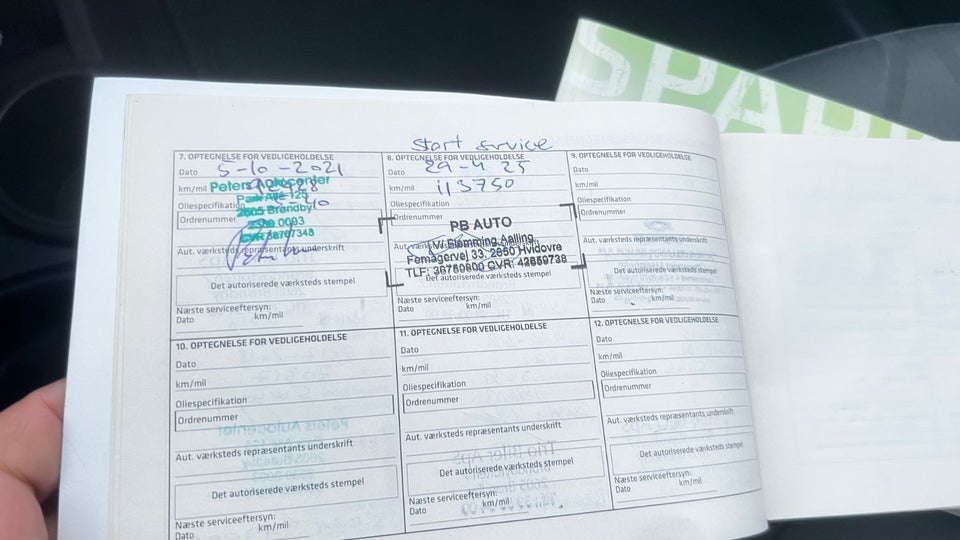 SPA
Start service
7. OPTEGNELSE FOR VEDLIGEHOLDELSE
Dato 5-10-2021
km/mil
Peters Autocenter
Park Allé 125
2605 Brøndby
CVR 38767348
Oliespecifikation
Ordrenummer
Aut. værksteds repræsentants underskrift
Det autoriserede værksteds stempel
Næste serviceeftersyn:
Dato km/mil
8. OPTEGNELSE FOR VEDLIGEHOLDELSE
Dato 29-4 25
km/mil 113750
Oliespecifikation
Ordrenummer
PB AUTO
V/ Flemming Aalling
Femagervej 33. 2650 Hvidovre
TLF: 36760800 CVR: 42659738
Det autoriserede værksteds stempel
Næste serviceeftersyn:
Dato km/mil
9. OPTEGNELSE FOR VEDLIGEHOLDELSE
Dato
km/mil
Oliespecifikation
Ordrenummer
Aut. værksteds repræsentants underskrift
Det autoriserede værksteds stempel
Næste serviceeftersyn:
Dato km/mil
10. OPTEGNELSE FOR VEDLIGEHOLDELSE
Dato
km/mil
Oliespecifikation
Ordrenummer
Aut. værksteds repræsentants underskrift
Det autoriserede værksteds stempel
Næste serviceeftersyn:
Dato km/mil
11. OPTEGNELSE FOR VEDLIGEHOLDELSE
Dato
km/mil
Oliespecifikation
Ordrenummer
Aut. værksteds repræsentants underskrift
Det autoriserede værksteds stempel
Næste serviceeftersyn:
Dato km/mil
12. OPTEGNELSE FOR VEDLIGEHOLDELSE
Dato
km/mil
Oliespecifikation
Ordrenummer
Aut. værksteds repræsentants underskrift
Det autoriserede værksteds stempel
Næste serviceeftersyn:
Dato km/mil